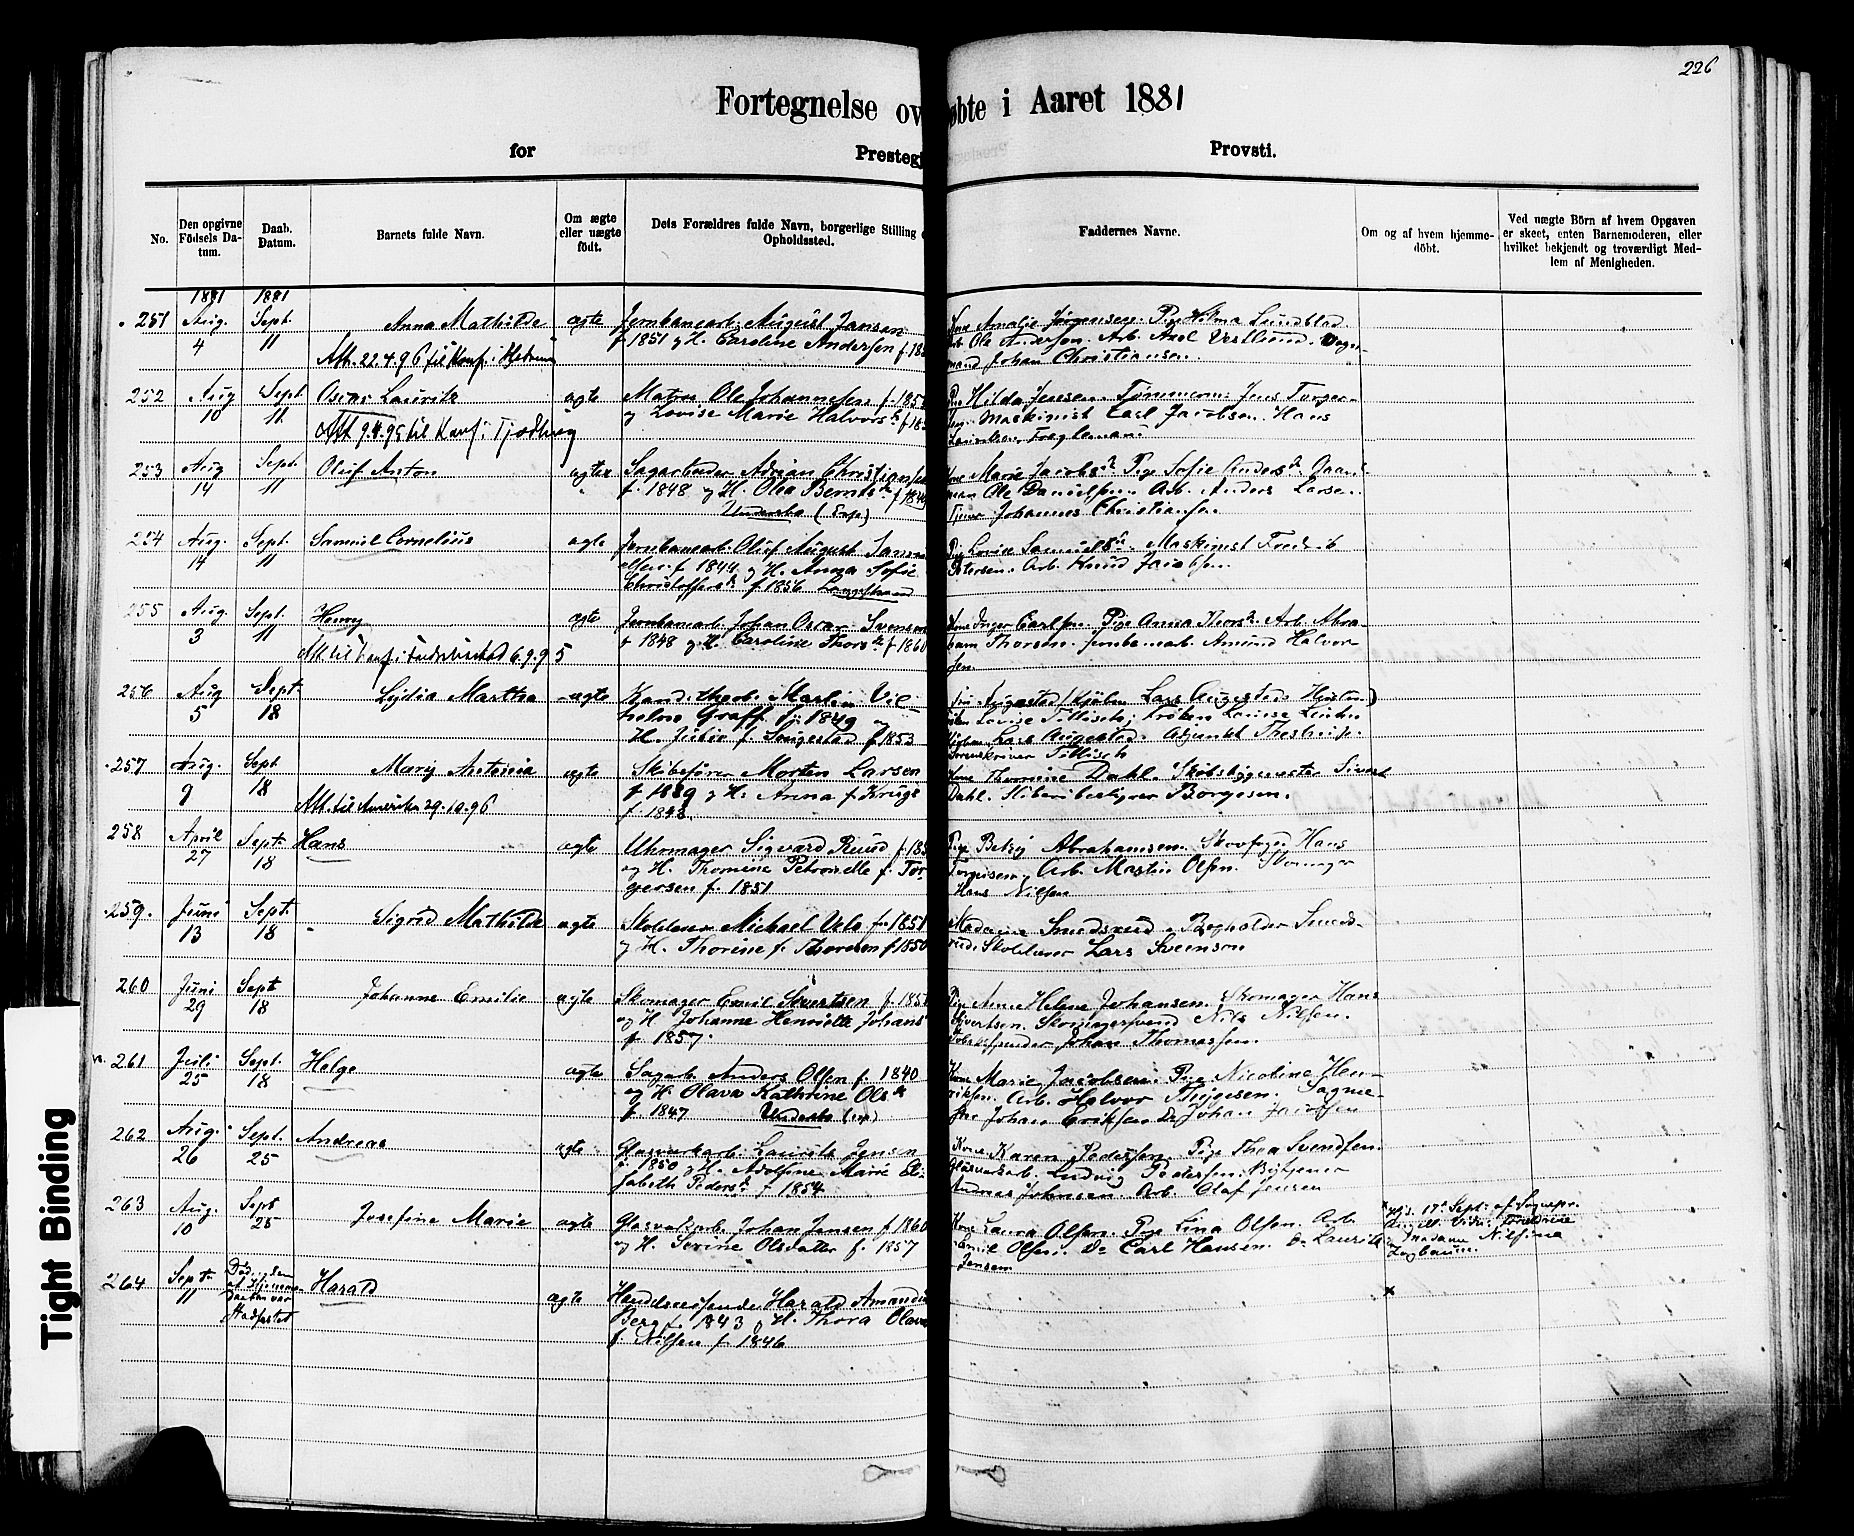 226
Fortegnelse ov
øbte i Aaret 1881
for
Prestegj
Provsti.
No.
Den opgivne Födsels Da-tum.
Daab. Datum.
Barnets fulde Navn.
Om ægte eller uægte födt.
Dets Forældres fulde Navn, borgerlige Stilling
Opholdssted.
Faddernes Navne.
Om og af hvem hjemme-döbt.
Ved uægte Börn af hvem Opgaven er skeet, enten Barnemoderen, eller hvilket bekjendt og troværdigt Med-lem af Menigheden.
1881 1881
251 Aug. 4 Sept. 11 Anna Mathilde ægte Jernbanearb. August Jansen
f. 1851 og H. Caroline Andersen f. 18
Att. 22.4.96 til Konf. i
Amalie Jørgensen. Pige Hilma Lundblad.
Ole Andersen. Arb. Axel Vestlund.
mand Johan Christiansen.
252 Aug 10 Sept 11. Oscar Lauritz ægte Matros Ole Johannesen f. 185
og Lovise Marie Halvorsd. f. 18
Att 9.4.95 til Konf. i Tjødling
Hilda Jensen. Tømmerm. Jens Torger-
sen. Maskinist Carl Jacobsen. Hans
253 Aug 14 Sept. 11 Oluf Anton ægte Sagarbeider Adrian Christiansen
f. 1848 og H. Olea Berntsd. f. 184
Undersbo (Exp)
Marie Jacobsd. Pige Sofie Andersd.
man Ole Danielsen. Arb. Anders Larsen.
Tjener Johannes Christiansen.
254 Aug. 14 Sept. 11 Samuel Cornelius ægte Jernbanearb. Oluf August Samu
elsen f. 1844 og H. Anna Sofie
Christoffersd. f. 1856 Langestrand
Pig Lovise Samuelsd. Maskinist Fredrik
Petersen. Arb. Knud Jacobsen.
255 Aug. 3 Sept. 11 Henry ægte Jernbanearb. Johan Oscar Svensen
f. 1848 og H. Caroline Thorsd. f. 1860
Att. til Konf. i Fredrikstad 6.9.95
Kone Inger Carlsen. Pige Anna Thorsd. Arb. Abra-
ham Thorsen. Jernbanearb. Amund Halvor
sen
256 Aug 5 Sept. 18 Lydia Martha ægte Kand. theol. Martin Vil-
helm Graff f. 1849 og
H. Julie f. Sougestad f. 1853
Lovise Tillisch; Frøken Lovise
Lars Augestad. Adjunkt
Sorenskriver Tillisch
257 Aug. 9 Sept 18 Mary Antonia ægte Skibsfører Morten Larsen
f. 1839 og H. Anna f. Krüge
f. 1843.
Att. til Amerika 29.10.96
Kone Thomine Dahl. Skibsbygmester Sivert
Dahl. Skibsbestyrer Borgesen.
258 April 27 Sept. 18 Hans ægte Uhrmager Sigvard Ruud f. 185
og H. Thomine Petronelle f. Tor-
gersen f. 1851
Pige Betzy Abrahamsen. Skovfoged Hans
Torgersen, Arb. Martin Olsen. Skomager
Hans Nilsen
259. Juni 13 Sept. 18 Sigrid Mathilde ægte Skolelærer Michael Vela f. 1851
og H. Thorine f. Thoresen f. 1850
Madame Smedsrud. Bogholder Smeds-
rud. Skolelærer Lars Svenson
260 Juni 29 Sept 18 Johanne Emilie ægte Skomager Emil Sivertsen f. 185
og H. Johanne Henriette Johans
f. 1857.
Pige Anne Helene Johansen. Skomager Hans
Sivertsen. Skomagersvend Nils Nilsen.
Johan Thomassen.
261 Juli 25 Sept. 18 Helge ægte Sagarb. Anders Olsen f. 1840
og H. Olava Kathrine Olsd.
f. 1847 Undersbo (exp)
Kone Marie Jacobsen. Pige Nicoline Hen-
riksen. Arb. Halvor Thygesen. Sagme-
ster Johan Eriksen Do Johan Jacobsen
262 Aug. 26 Sept. 25 Andreas ægte Glasværkarb. Lauritz Jensen
f. 1850 og H. Adolfine Marie El-
isabeth Pedersd. f. 1854
Kone Karen Pedersen. Pige Thea Svendsen.
Glasværksarb. Ludvig Pedersen. Bytjener
Andreas Johnsen. Arb. Olaf Jensen
263 Aug. 10 Sept 25 Josefine Marie ægte Glasværkarb. Johan Jensen f. 1860
og H. Sevine Olsdatter f. 1857
Kone Laura Olsen. Pige Lina Olsen. Arb.
Emil Olsen. Do Carl Hansen. Do Lauritz
Jensen
hj.d. 17de Sept. af Sognepr.
og Madam Nilsine
264 Sept. 11 Død, den
af Hjemme
Daaben var
Stadfæstet
Harald ægte Handelsreisende Harald Amandus
Berg f. 1843 og H. Thora Olava
f. Nilsen f. 1846
x
Tight Binding